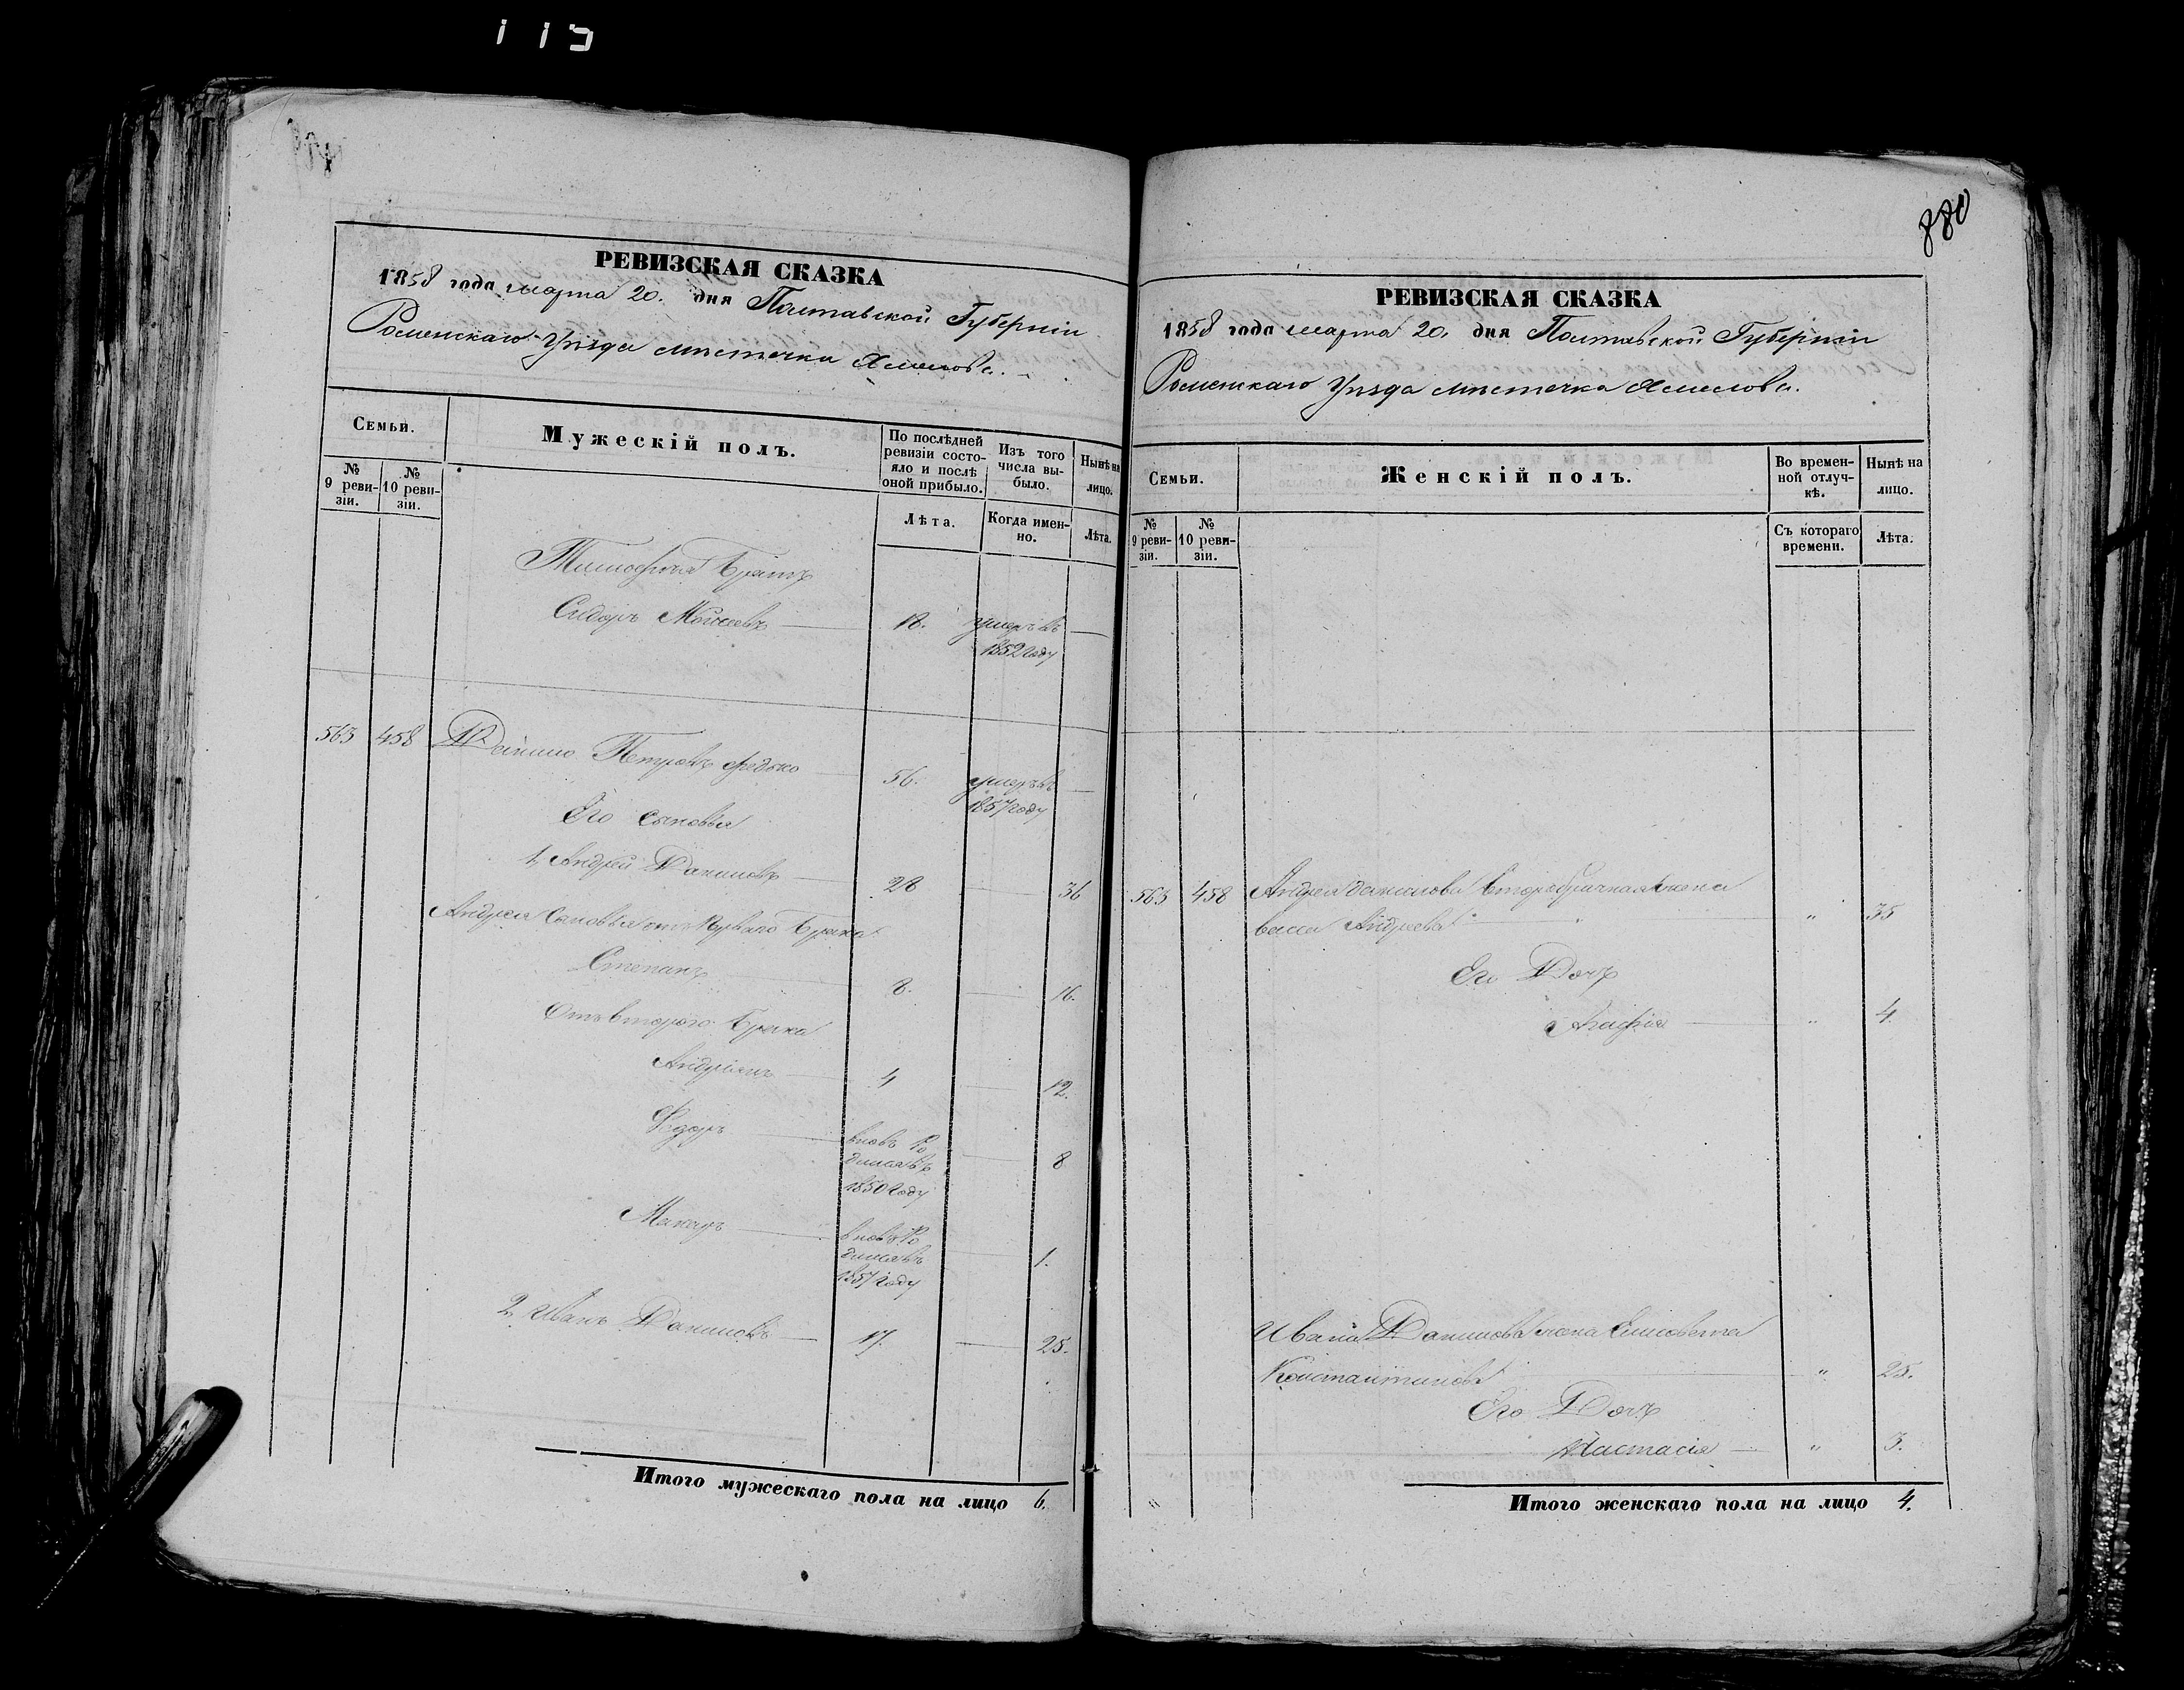 115
РЕВИЗСКАЯ СКАЗКА
1858 года марта 20. дня Полтавской Губерніи
Роменскаго Уѣзда мѣстечка Смелова.
Семьи.
Мужескій полъ.
По послѣдней ревизіи состояло и послѣ оной прибыло.
Изъ того числа выбыло.
Нынѣ на лицо.
№ 9 ревизіи.
№ 10 ревизіи.
Лѣта.
Когда именно.
Лѣта.
Тимофея Братъ
Сидоръ Моисеевъ 18. умеръ въ 1852 году
563 458 Данило Петровъ Редько 56. умеръ въ 1857 году
Его сыновья
1, Андрей Даниловъ 28 36
Андрея сыновья отъ Перваго Брака
Степанъ 8. 16.
Отъ втораго Брака
Андріанъ 4 12.
Федоръ вновь Родился въ 1850 году 8
Макаръ вновь Родился въ 1857 году 1.
2, Иванъ Даниловъ 17. 25.
Итого мужескаго пола на лицо 6.
880
РЕВИЗСКАЯ СКАЗКА
1858 года марта 20. дня Полтавской Губерніи
Роменскаго Уѣзда мѣстечка Смелова.
Семьи.
Женскій полъ.
Во временной отлучкѣ.
Нынѣ на лицо.
№ 9 ревизіи.
№ 10 ревизіи.
Съ котораго времени.
Лѣта.
563 458 Андрея Данилова Второбрачная жена
Андреева " 35
Его Дочь
Агафія " 4.
Ивана Данилова жена Елисовета
Константинова " 25.
Его Дочь
Настасія " 3.
Итого женскаго пола на лицо 4.